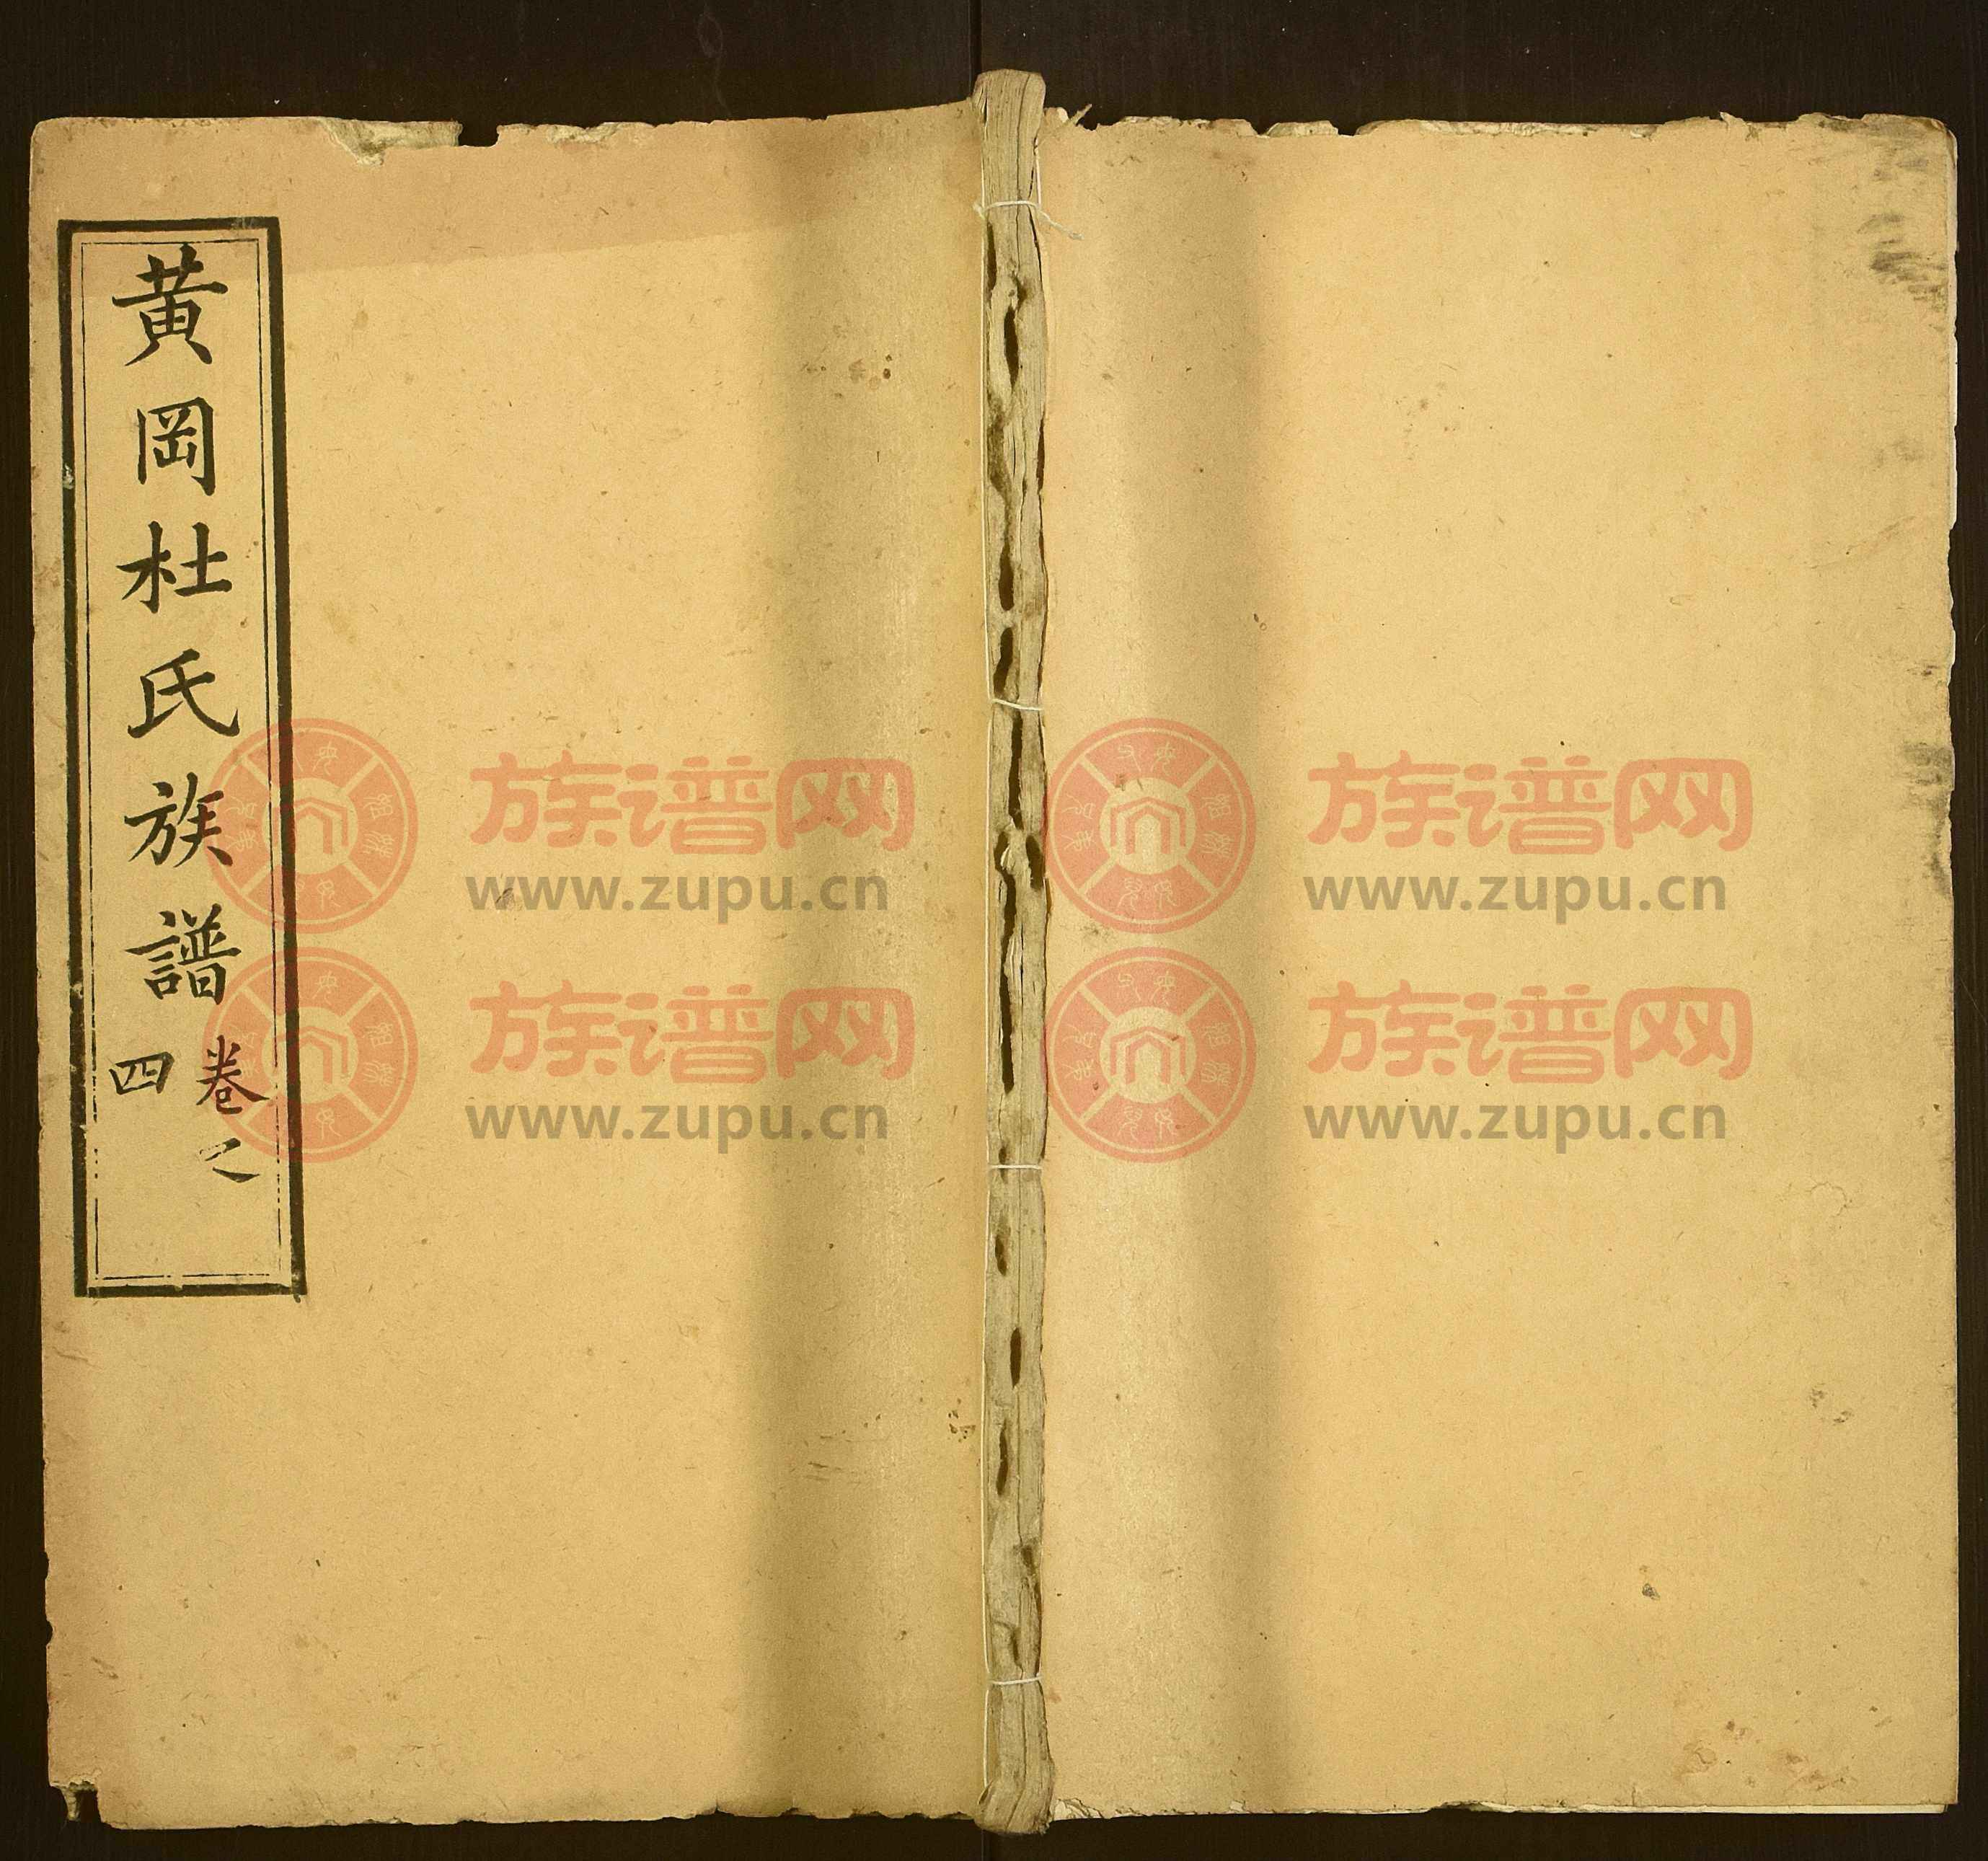 黄岡杜氏族譜
卷之
四
族谱网
www.zupu.cn
族谱网
www.zupu.cn
族谱网
www.zupu.cn
族谱网
www.zupu.cn